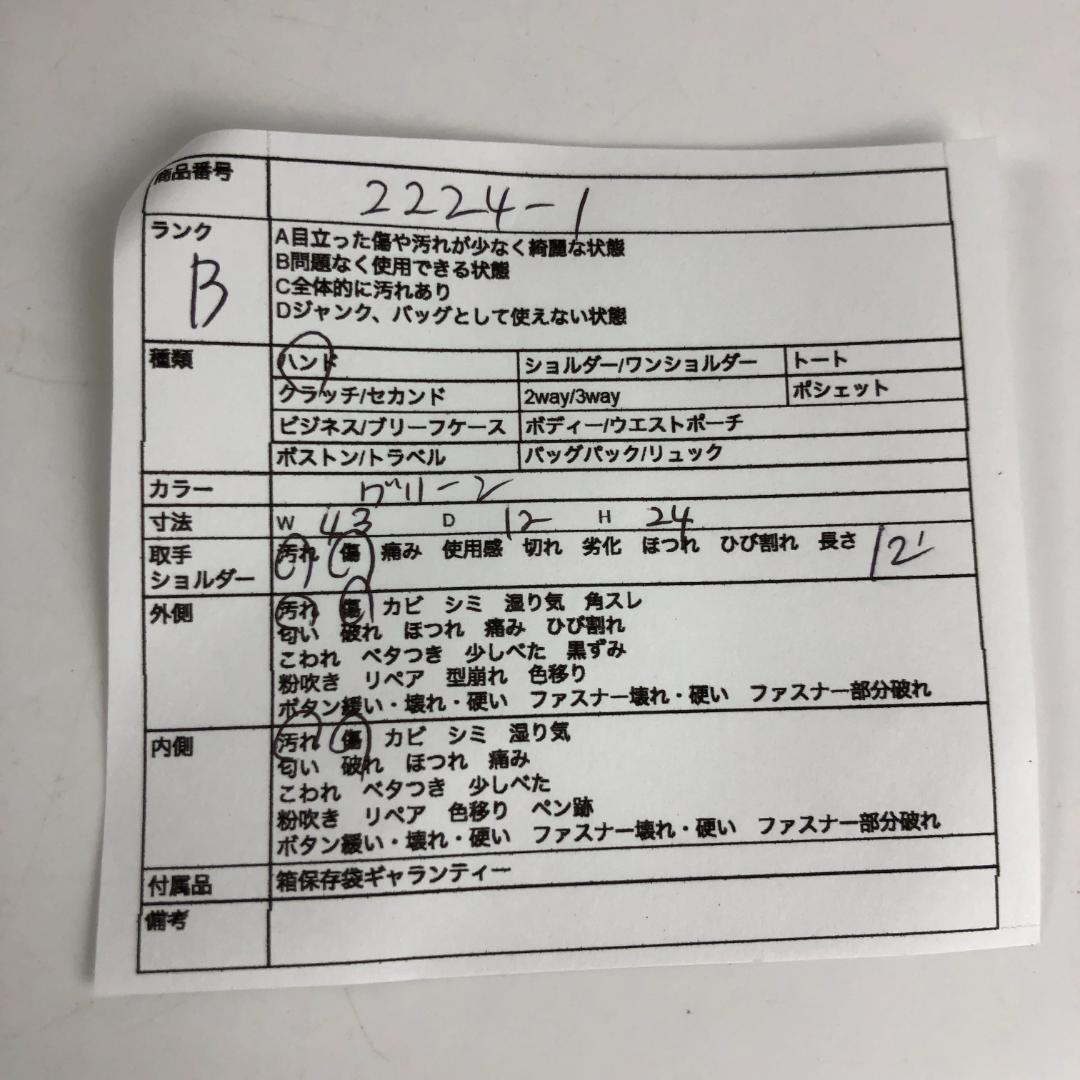 商品番号 2224-1
ランク B
A目立った傷や汚れが少なく綺麗な状態
B問題なく使用できる状態
C全体的に汚れあり
Dジャンク、バッグとして使えない状態
種類 ハンド ショルダー/ワンショルダー トート
クラッチ/セカンド 2way/3way ポシェット
ビジネス/ブリーフケース ボディー/ウエストポーチ
ボストン/トラベル バッグパック/リュック
カラー グリーン
寸法 W 43 D 12 H 24
取手 汚れ 傷 痛み 使用感 切れ 劣化 ほつれ ひび割れ 長さ 12
ショルダー
外側 汚れ 傷 カビ シミ 湿り気 角スレ
匂い 破れ ほつれ 痛み ひび割れ
こわれ ベタつき 少しべた 黒ずみ
粉吹き リペア 型崩れ 色移り
ボタン緩い・壊れ・硬い ファスナー壊れ・硬い ファスナー部分破れ
内側 汚れ 傷 カビ シミ 湿り気
匂い 破れ ほつれ 痛み
こわれ ベタつき 少しべた
粉吹き リペア 色移り ペン跡
ボタン緩い・壊れ・硬い ファスナー壊れ・硬い ファスナー部分破れ
付属品 箱保存袋ギャランティー
備考